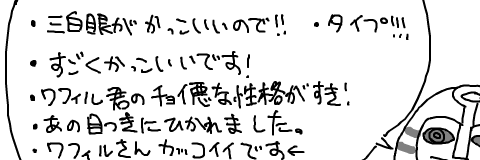 ・三白眼がかっこいいので!! ・タイプ!!!
・すごくかっこいいです!
・ワフィル君のチョイ悪な性格がすき!
・あの目つきにひかれました。
・ワフィルさんカッコイイです←